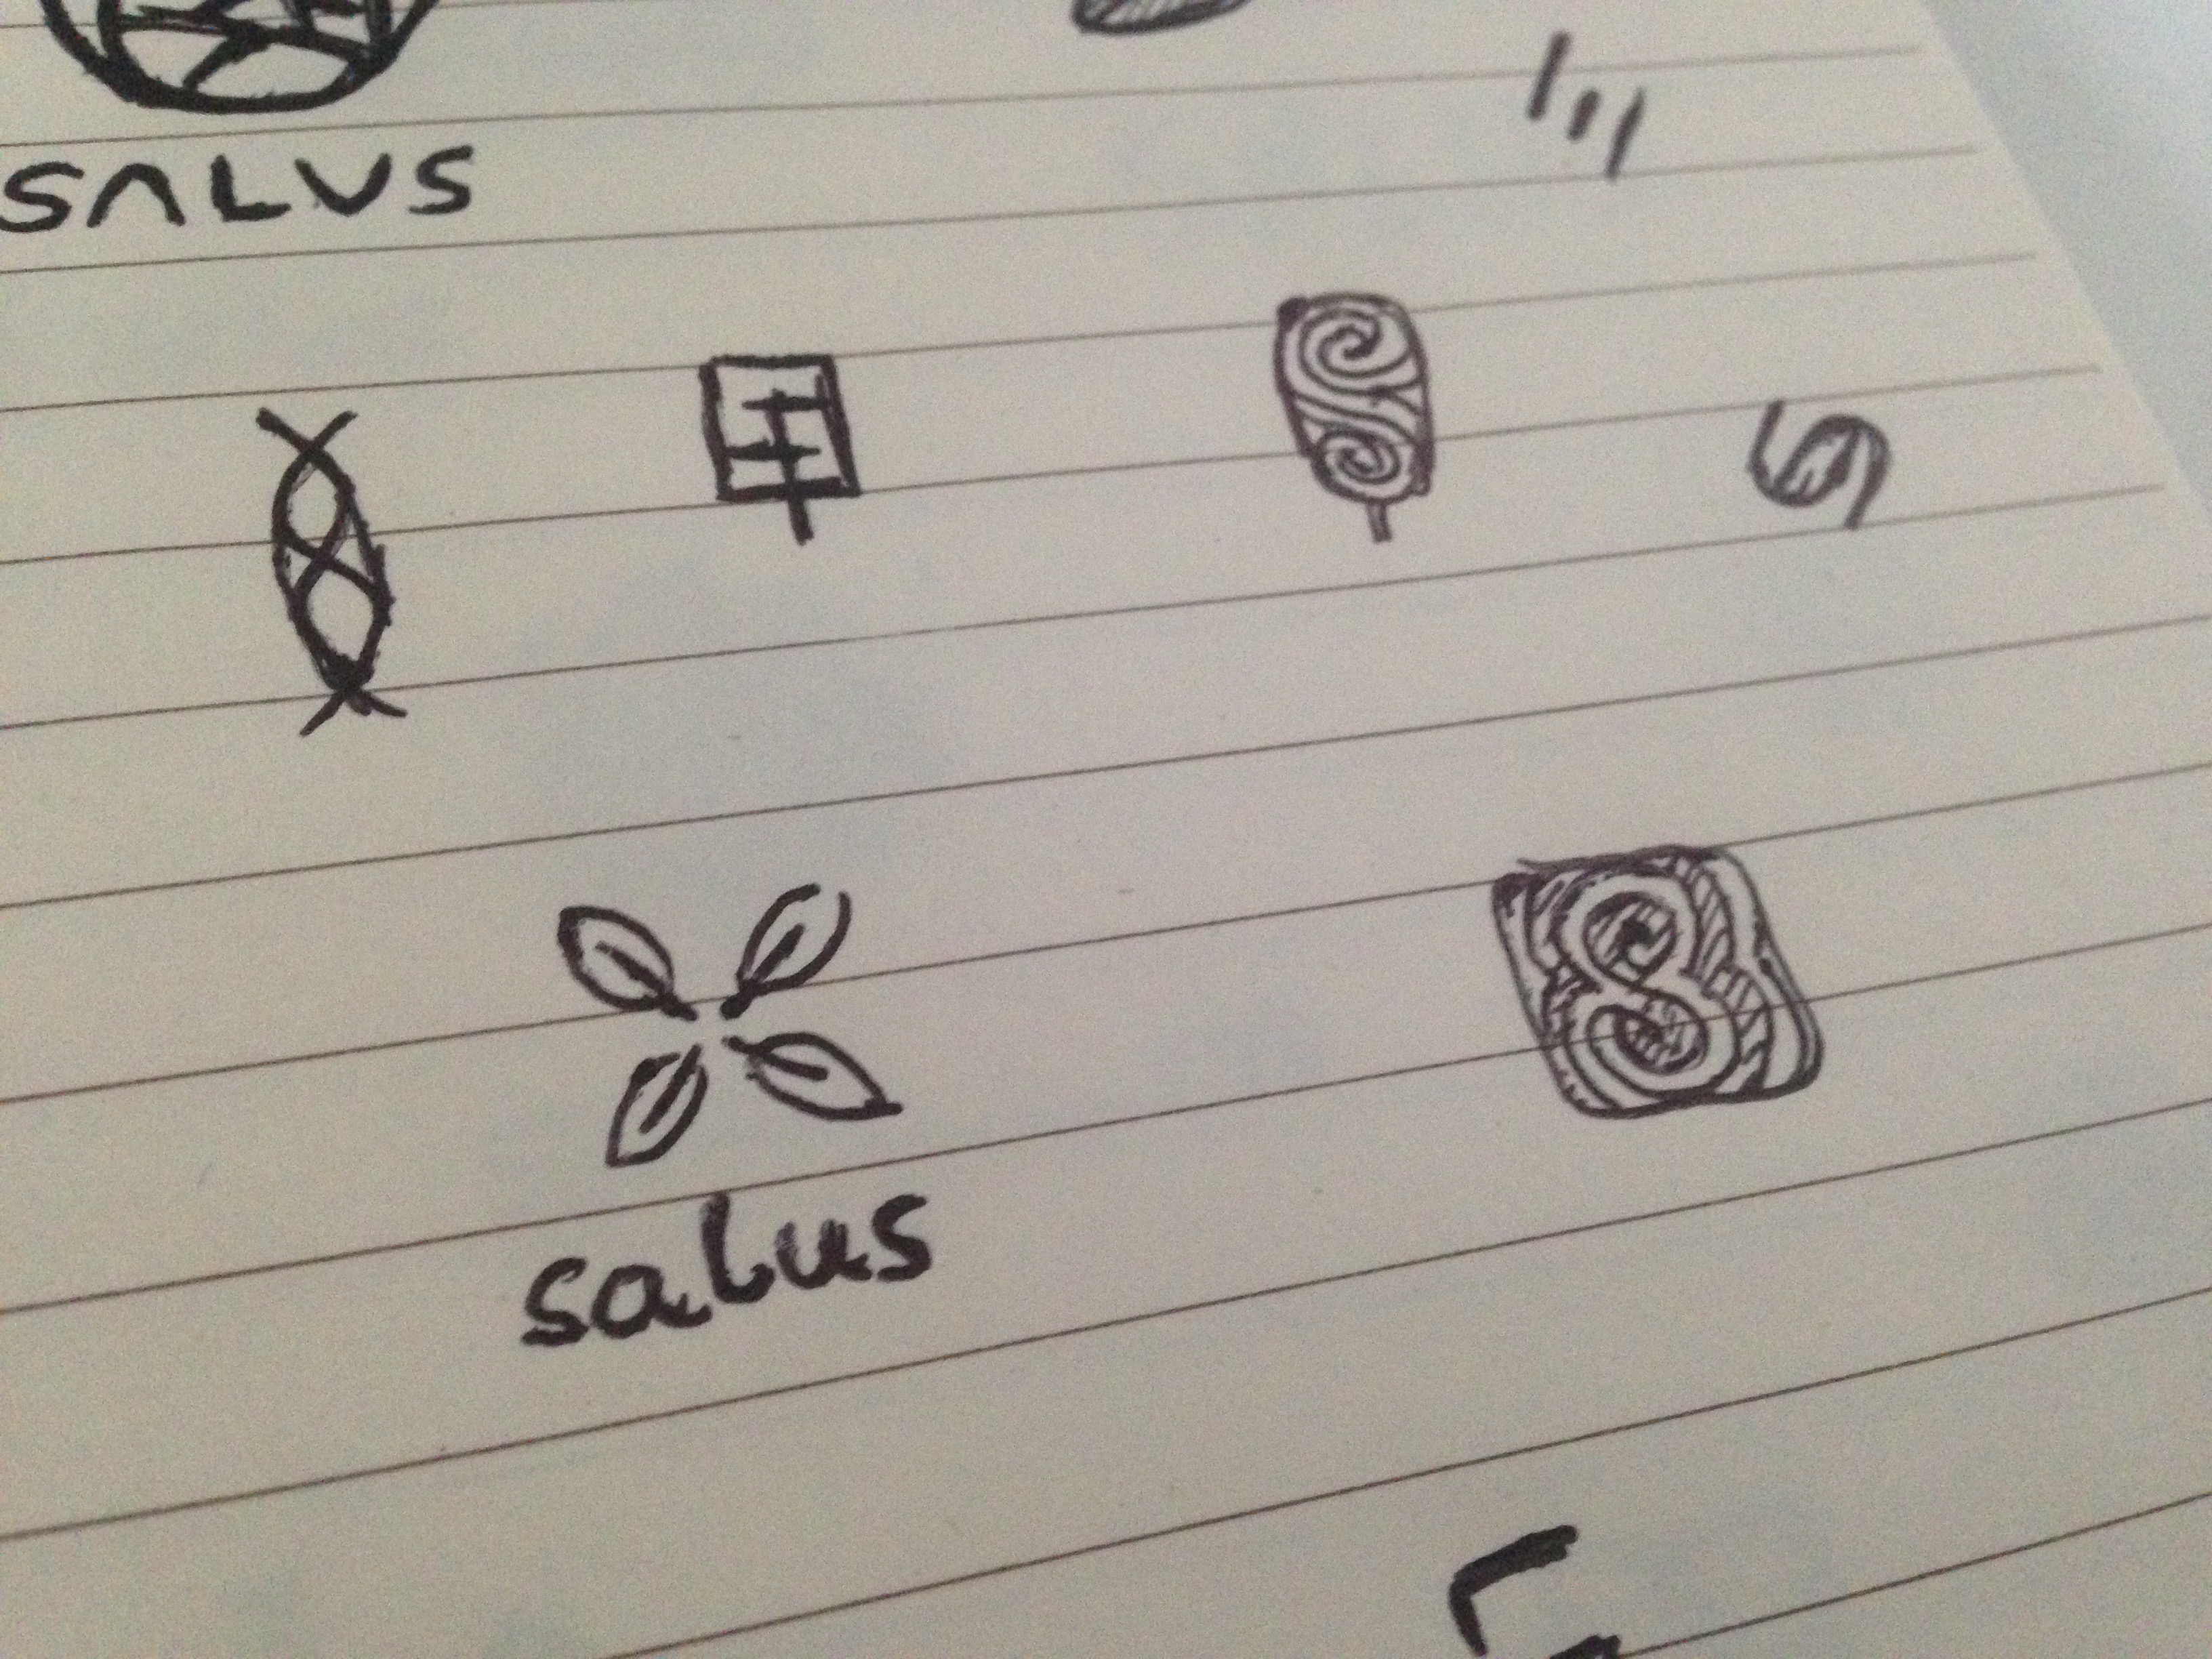 SALUS
salus